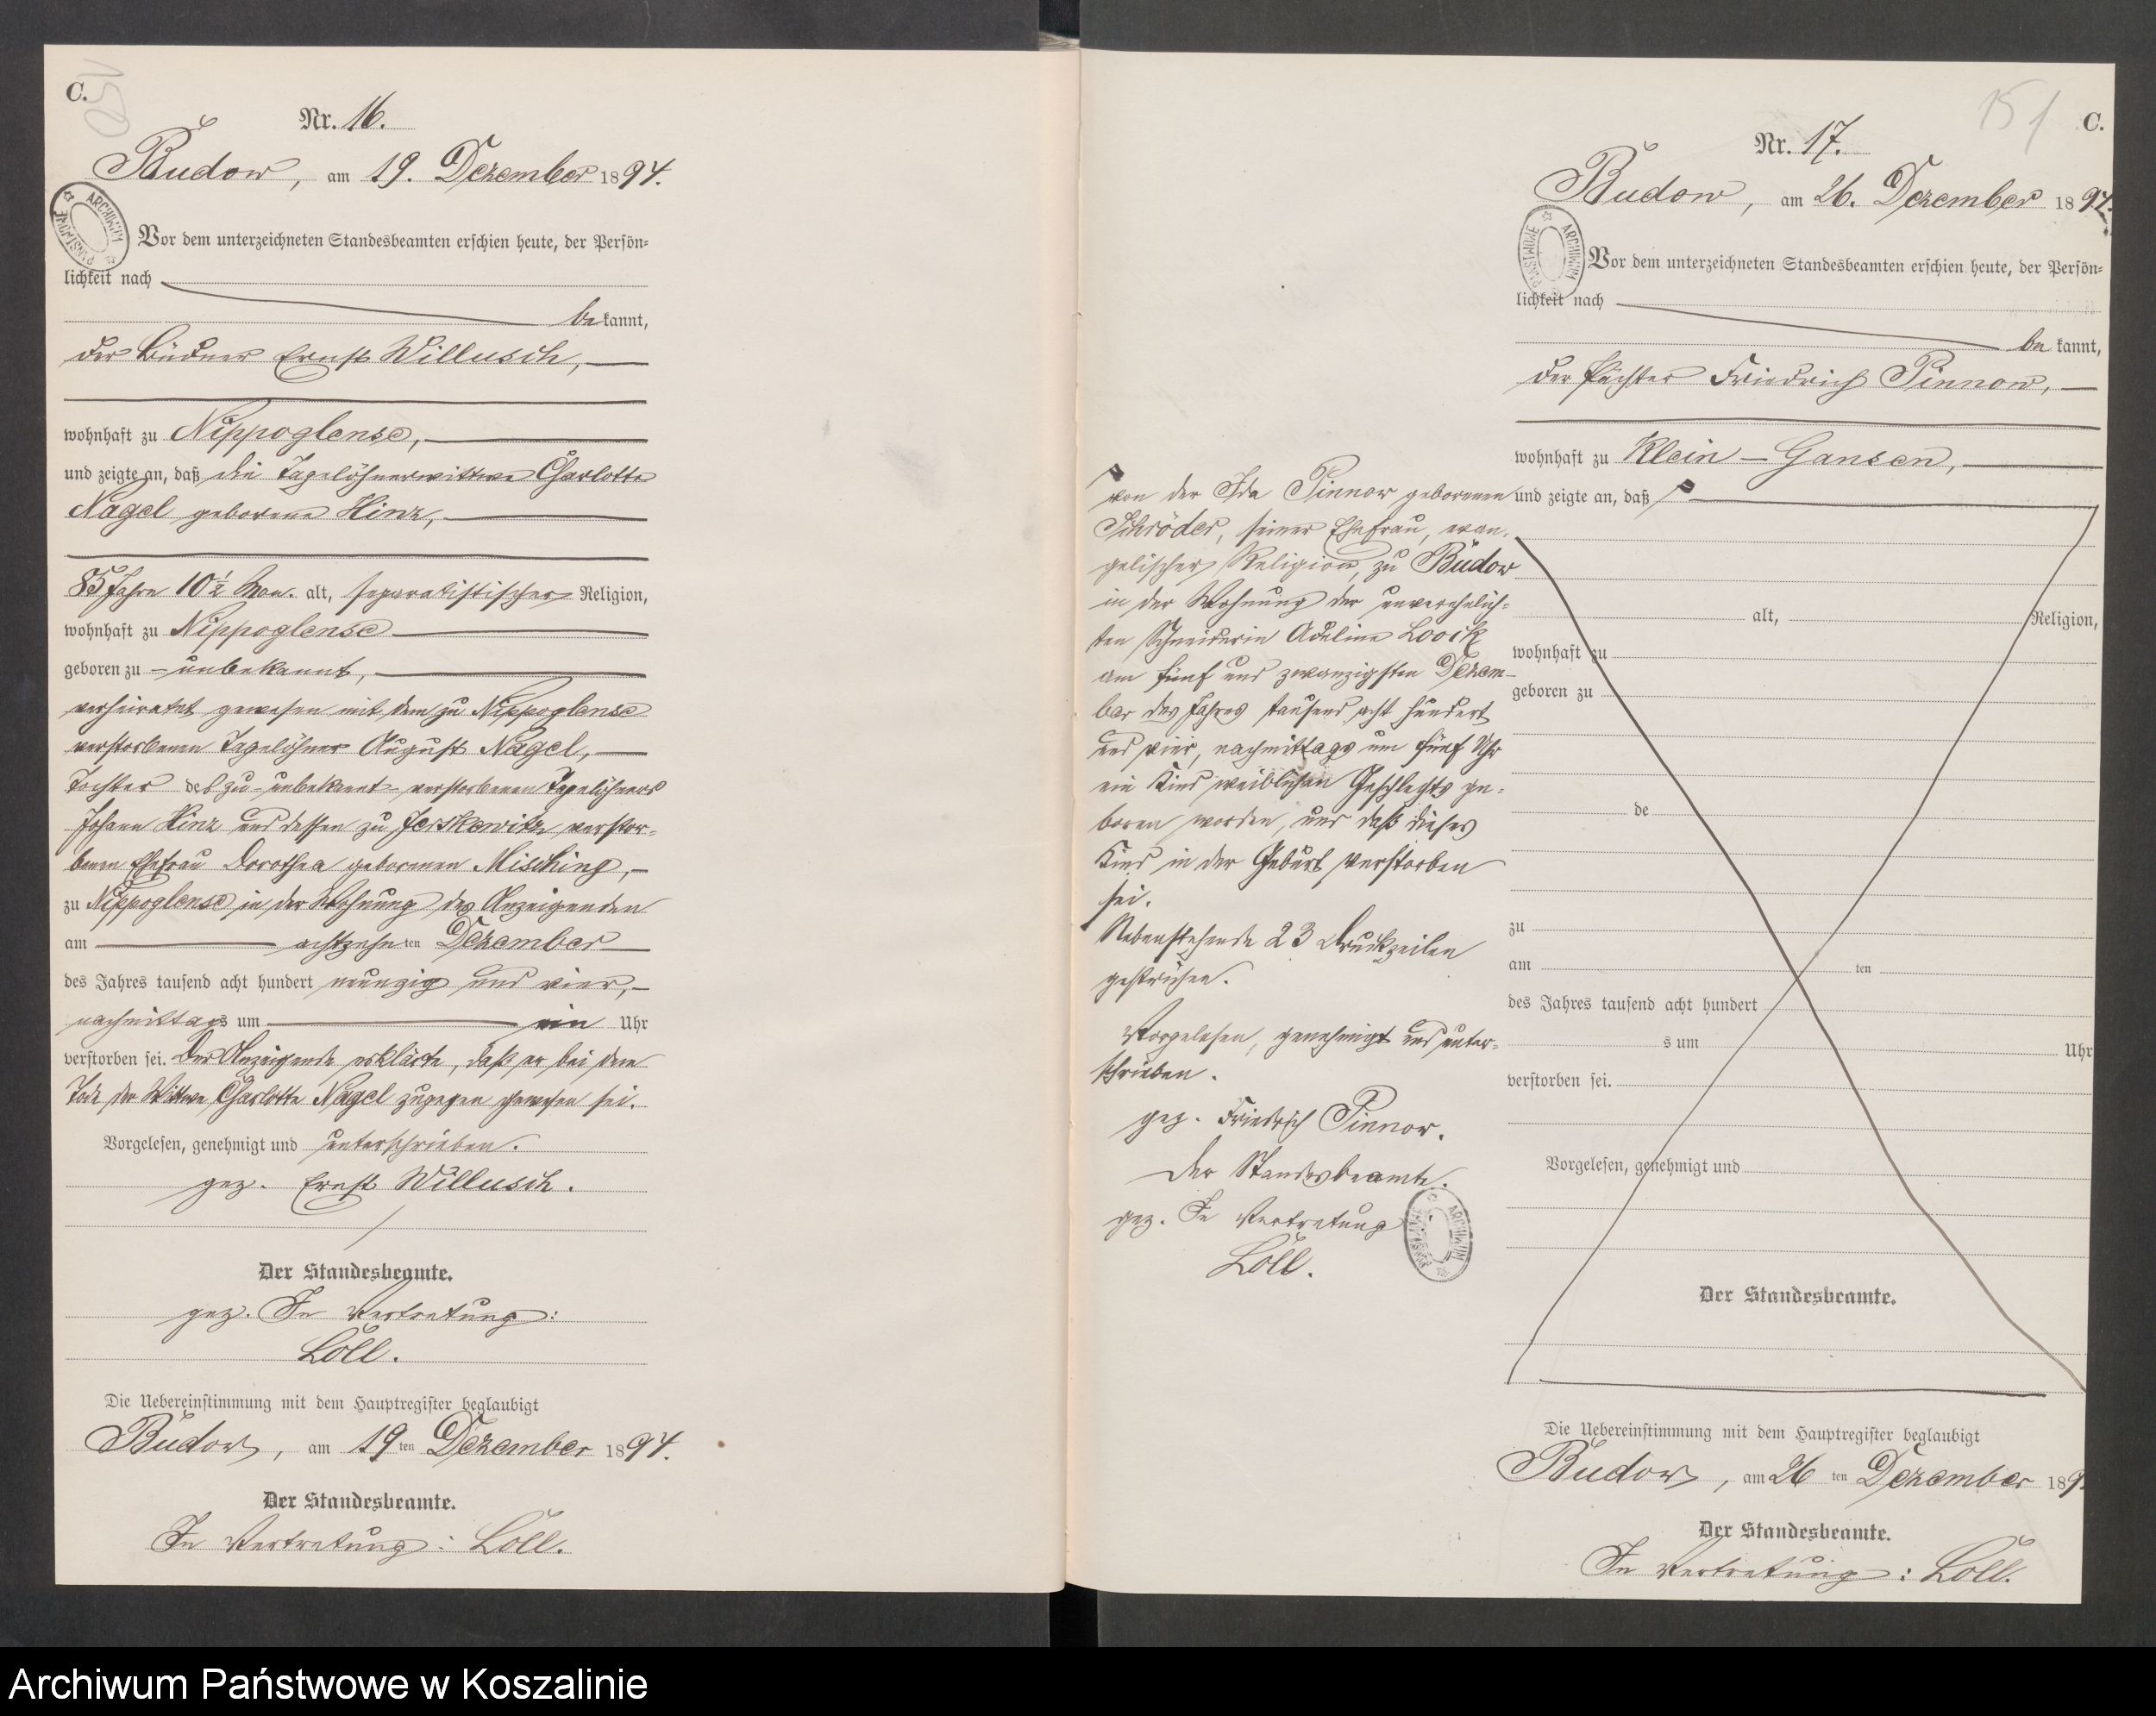 C.
150
Nr. 16.
Budow, am 19. Dezember 1894.
Vor dem unterzeichneten Standesbeamten erschien heute, der Persön=
lichkeit nach
bekannt,
der Büdner Ernst Willusch,
wohnhaft zu Nippoglense,
und zeigte an, daß die Tagelöhnerwittwe Charlotte
Nagel geborene Hinz,
85 Jahre 10½ Mon. alt, separatistischer Religion,
wohnhaft zu Nippoglense
geboren zu unbekannt,
verheiratet gewesen mit dem zu Nippoglense
verstorbenen Tagelöhner August Nagel,
Tochter des zu - unbekannt - verstorbenen Tagelöhners
Johann Hinz und dessen zu Jerskewitz verstor=
benen Ehefrau Dorothea geborenen Misching,
zu Nippoglense in der Wohnung des Anzeigenden
am achtzehnten Dezember
des Jahres tausend acht hundert neunzig und vier,
nachmittags um ein Uhr
verstorben sei. Der Anzeigende erklärte, daß er bei dem
Tode der Wittwe Charlotte Nagel zugegen gewesen sei.
Vorgelesen, genehmigt und unterschrieben.
gez. Ernst Willusch.
Der Standesbeamte.
gez. In Vertretung:
Löll.
Die Uebereinstimmung mit dem Hauptregister beglaubigt
Budow, am 19ten Dezember 1894.
Der Standesbeamte.
In Vertretung: Löll.
151
C.
Nr. 17.
Budow, am 26. Dezember 1894.
Vor dem unterzeichneten Standesbeamten erschien heute, der Persön=
lichkeit nach
bekannt,
der Pächter Friedrich Pinnow,
wohnhaft zu Klein-Gansen,
und zeigte an, daß
von der Ida Pinnow geborenen
Schröder, seiner Ehefrau, evan-
gelischer Religion, zu Budow
in der Wohnung der unverehelich=
ten Schneiderin Adeline Loock
am fünf und zwanzigsten Dezem-
ber des Jahres tausend acht hundert
und vier, nachmittags um fünf Uhr
ein Kind weiblichen Geschlechts ge=
boren worden, und daß dieses
Kind in der Geburt verstorben
sei.
Nebenstehende 23 Druckzeilen
gestrichen.
Vorgelesen, genehmigt und unter=
schrieben.
gez. Friedrich Pinnow.
Der Standesbeamte.
gez. In Vertretung
Löll.
alt, Religion,
wohnhaft zu
geboren zu
de
zu
am ten
des Jahres tausend acht hundert
s um Uhr
verstorben sei.
Vorgelesen, genehmigt und
Der Standesbeamte.
Die Uebereinstimmung mit dem Hauptregister beglaubigt
Budow, am 26 ten Dezember 189
Der Standesbeamte.
In Vertretung: Löll.
ARCHIWUM PAŃSTWOWE
ARCHIWUM PAŃSTWOWE
ARCHIWUM PAŃSTWOWE
Archiwum Państwowe w Koszalinie